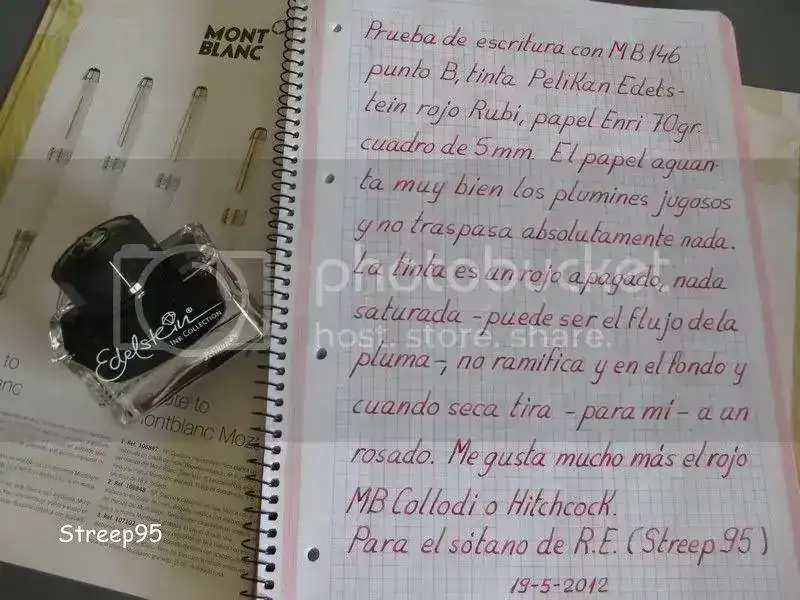 MONT
BLANC
Prueba de escritura con MB146
punto B, tinta PeliKan Edels-
tein rojo Rubi, papel Enri 70gr.
cuadro de 5mm. El papel aguan-
ta muy bien los plumines jugosos
y no traspasa absolutamente nada.
La tinta es un rojo apagado, nada
saturada - puede ser el flujo de la
pluma -, no ramifica y en el fondo y
cuando seca tira - para mí - a un
rosado. Me gusta mucho más el rojo
MB Collodi o Hitchcock.
Para el sótano de R.E. (Streep 95)
19-5-2012
Edelstein
INK COLLECTION
Pelikan
to
anc
ate to
Montblanc Moz
1. Ref. 106847
2. Ref. 106848
3. Ref. 107102
photobucket
host. store. share.
Streep95